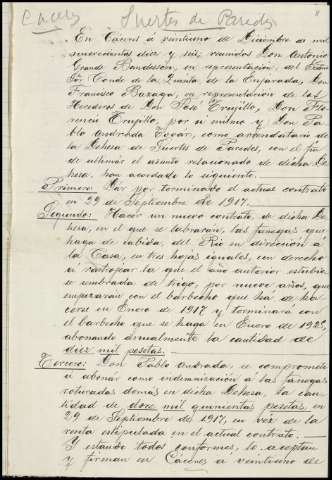 Caceres Suertes de Paredes
En Caceres a veintiuno de Diciembre de mil
novecientos diez y seis reunidos Don Antonio
Grande Baudesson, en representación del Excmo
Sor. Conde de la Quinta de la Enjarada, Don
Francisco Bazaga, en representación de los
Herederos de Don José Trujillo, Don Flo-
rencio Trujillo, por si mismo y Don Pa-
blo Andrada Tovar, como arrendatario de
la Dehesa de Suertes de Paredes, con el fin
de ultimar el asunto relacionado de dicha De-
hesa, han acordado lo siguiente.
Primero: Dar por terminado el actual contrato
en 29 de Septiembre de 1917.
Segundo: Hacer un nuevo contrato, de dicha De-
hesa, en el que se labraran, las fanegas que
haga de cabida, del Rio en direccion a
la Casa, en tres hojas iguales, con derecho
á rastrojear la que el año anterior estubie-
se sembrada de trigo, por nueve años, que
empezaran con el barbecho que ha de ha-
cerse en Enero de 1917 y terminará con
el barbecho que se haga en Enero de 192
abonando anualmente la cantidad de
diez mil pesetas.
Tercero: Don Pablo Andrada, se compromete
a abonar como indemnización a las fanegas
roturadas demas en dicha Dehesa, la can-
tidad de doce mil quinientas pesetas, en
29 de Septiembre de 1917, en vez de la
renta estipulada en el actual contrato.
Y estando todos conformes, lo aceptan
y firman en Caceres a veintiuno de